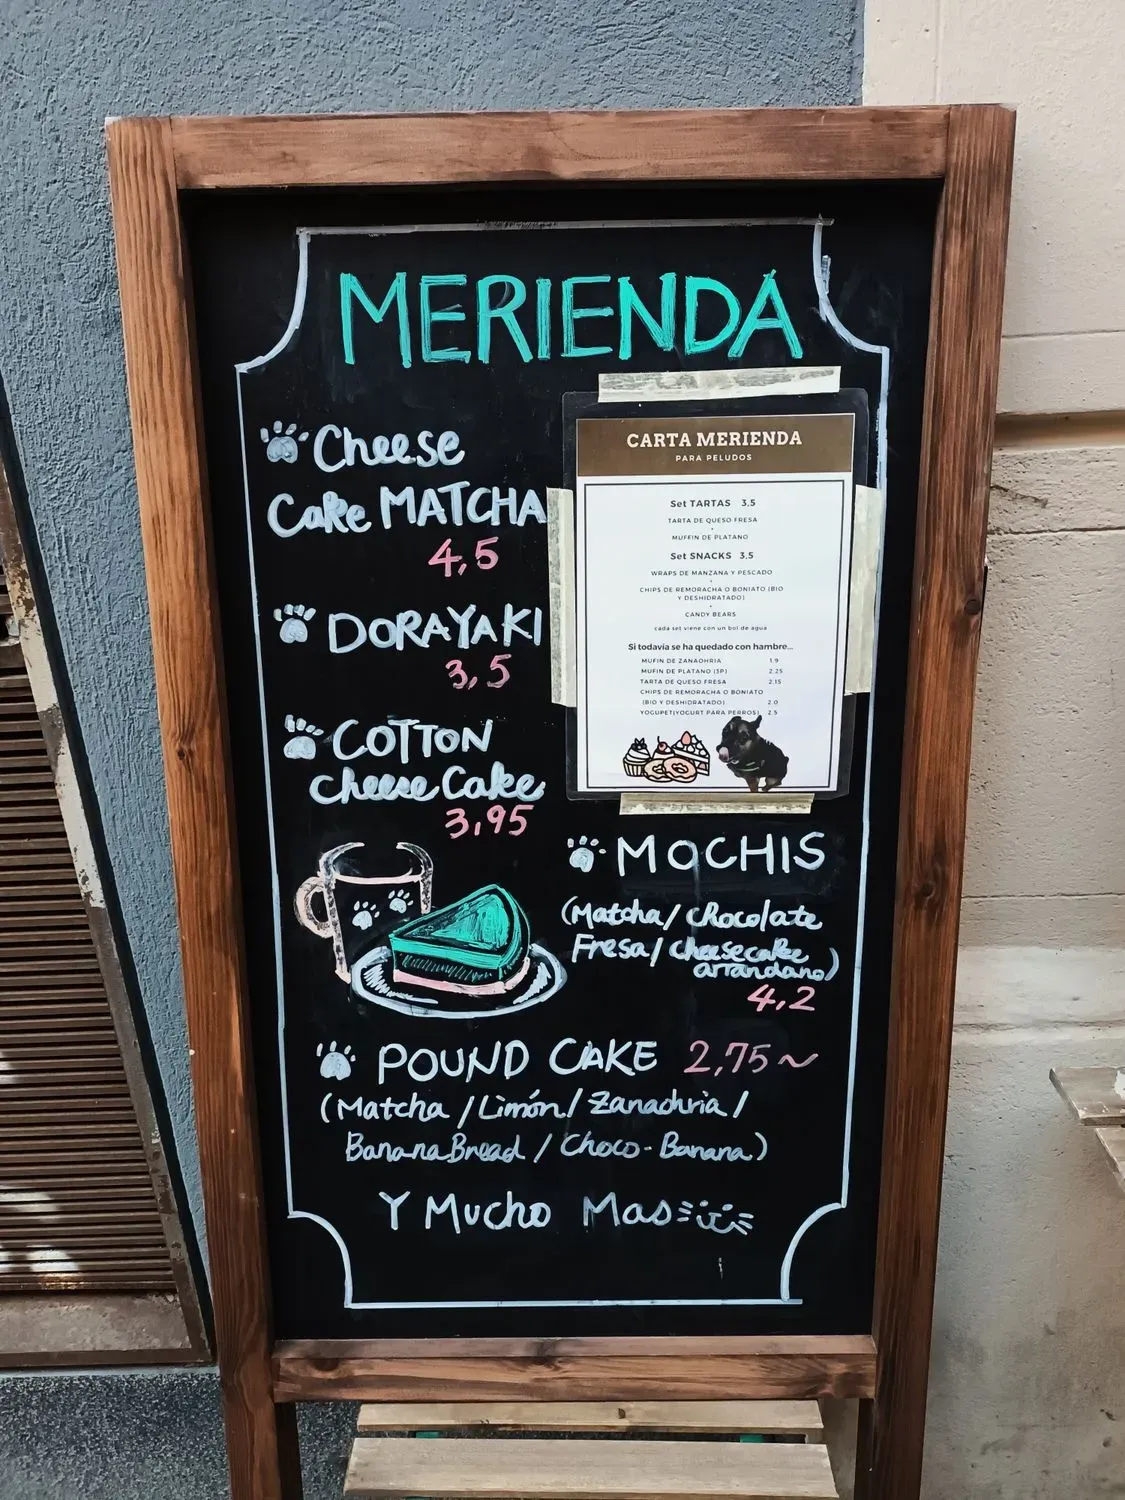 MERIENDA
Cheese
Cake MATCHA
4,5
DORAYAKI
3,5
COTTON
cheese Cake
3,95
CARTA MERIENDA
PARA PELUDOS
Set TARTAS 3.5
TARTA DE QUESO FRESA
MUFFIN DE PLATANO
Set SNACKS 3.5
WRAPS DE MANZANA Y PESCADO
CHIPS DE REMORACHA O BONIATO (BIO
Y DESHIDRATADO)
CANDY BEARS
cada set viene con un bol de agua
Si todavía se ha quedado con hambre...
MUFIN DE ZANAOHRIA 1.9
MUFIN DE PLATANO (3P) 2.25
TARTA DE QUESO FRESA 2.15
CHIPS DE REMORACHA O BONIATO
(BIO Y DESHIDRATADO) 2.0
YOGUPET(YOGURT PARA PERROS) 2.5
MOCHIS
(Matcha/chocolate
Fresa/cheesecake
arrandano)
4,2
POUND CAKE 2,75~
(Matcha /Limón/Zanachria/
Banana Bread / Choco-Banana)
Y Mucho Mas